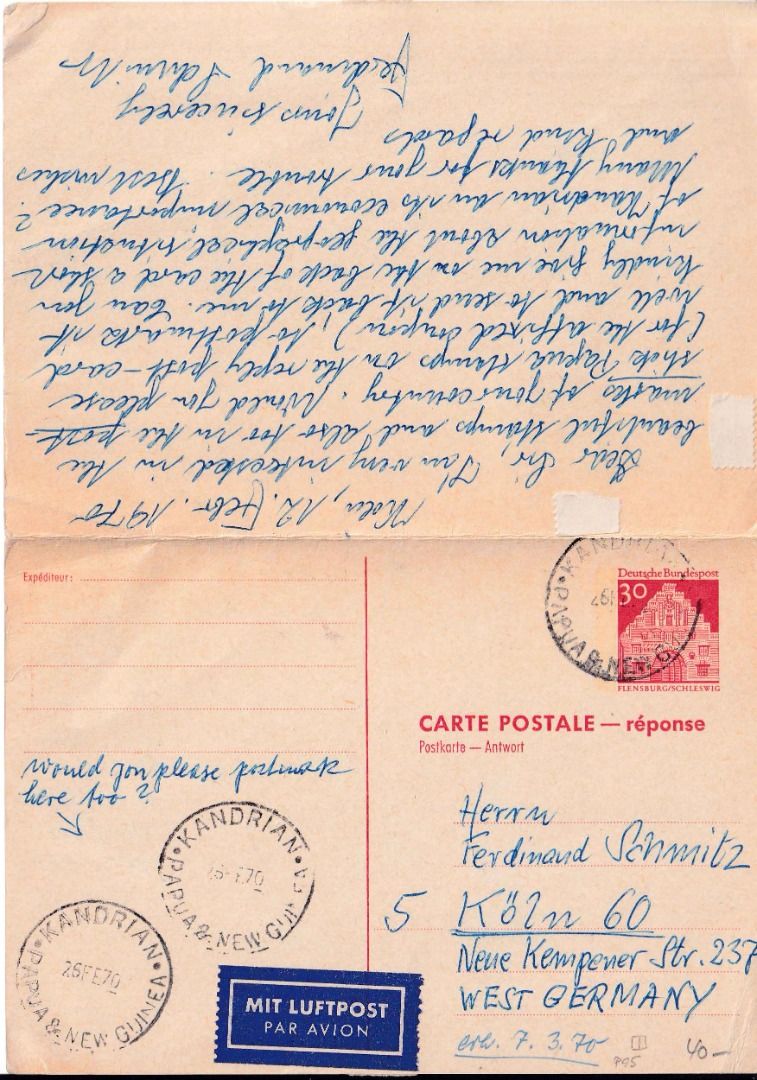 Köln, 12. Febr. 1970
Dear Sir, I'am very interested in the
beautiful stamps and also too in the post-
marks of your country. Would you please
stick Papua stamps on the reply post-card
(for the affixed coupon), to postmark it
well and to send it back to me. Can you
kindly give me on the back of the card a short
information about the geographical situation
of Kandrian an its economical importance?
Many thanks for your trouble. Best wishes
and kind regards
Yours sincerely
Ferdinand Schmitz
Expéditeur:
would you please postmark
here too?
KANDRIAN
PAPUA & NEW GUINEA
26FE70
KANDRIAN
PAPUA & NEW GUINEA
26FE70
MIT LUFTPOST
PAR AVION
KANDRIAN
PAPUA & NEW GUI
26F
Deutsche Bundespost
30
FLENSBURG/SCHLESWIG
CARTE POSTALE — réponse
Postkarte — Antwort
Herrn
Ferdinand Schmitz
5 Köln 60
Neue Kempener Str. 237
WEST GERMANY
erh. 7. 3. 70
P95
40-